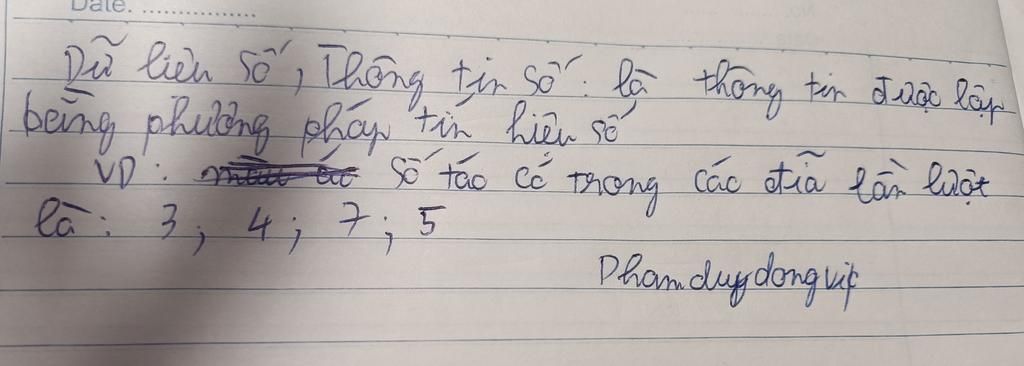 Date. ................
Dữ liệu số, Thông tin số: là thông tin được lập
bằng phương pháp tín hiệu số
VD: số táo có trong các đĩa lần lượt
là: 3; 4; 7; 5
Phamduydong